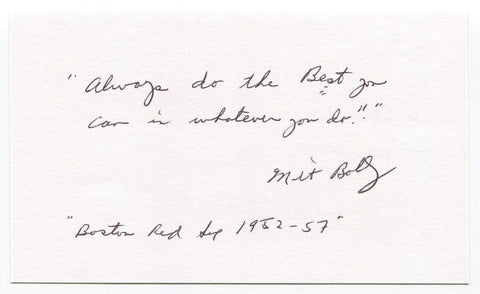 "Always do the Best you
can in whatever you do."
Milt Bolling
"Boston Red Sox 1952-57"